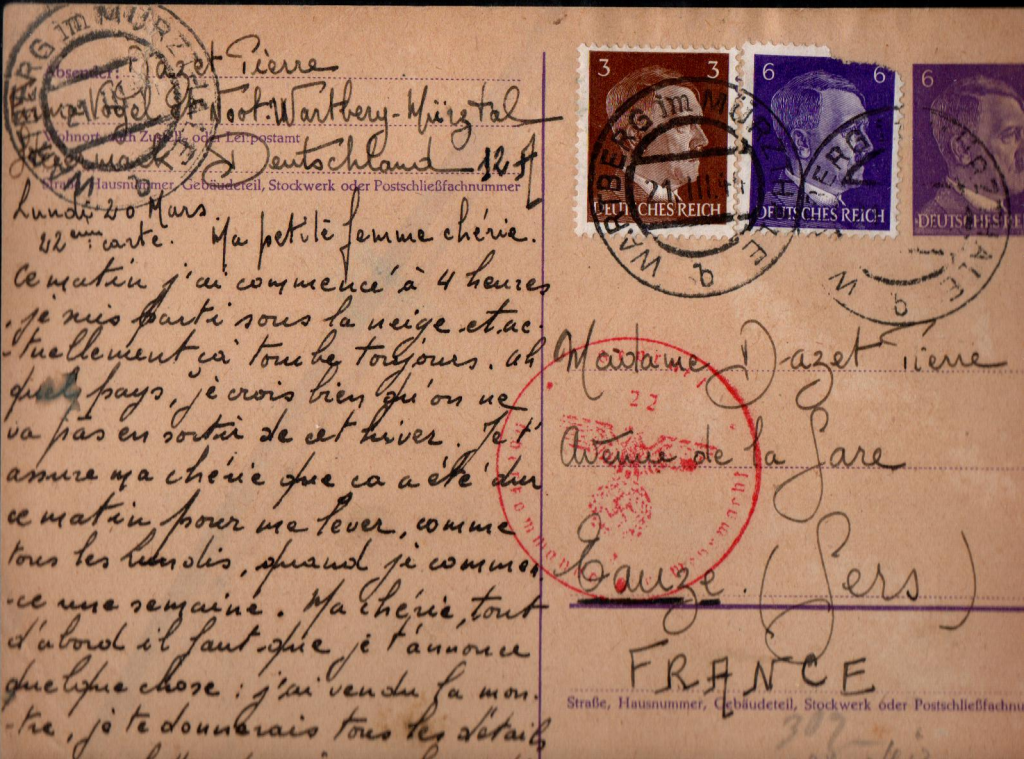 Absender: Dazet Pierre
Vogel et Noot. Wartberg-Mürztal
Wohnort, auch Zustell- oder Leitpostamt
Deutschland 12
Straße, Hausnummer, Gebäudeteil, Stockwerk oder Postschließfachnummer
Lundi 20 Mars
42eme carte. Ma petite femme chérie.
ce matin j'ai commencé à 4 heures
, je suis parti sous la neige et ac-
-tuellement ça tombe toujours. Ah
quel pays, je crois bien qu'on ne
va pas en sortir de cet hiver. Je t'
assure ma chérie que ça a été dur
ce matin pour me lever, comme
tous les lundis, quand je commen
-ce une semaine. Ma chérie, tout
d'abord il faut que je t'annonce
quelque chose : j'ai vendu la mon-
-tre, je te donnerais tous les détails
WARTBERG im MÜRZTALE
3 3
DEUTSCHES REICH
6 6
DEUTSCHES REICH
6
DEUTSCHES RE
WARTBERG im MÜRZTALE
21.III.44
b
WARTBERG im MÜRZTALE
b
22
Madame Dazet Pierre
Avenue de la Gare
Eauze. (Gers)
FRANCE
Straße, Hausnummer, Gebäudeteil, Stockwerk oder Postschließfachnu